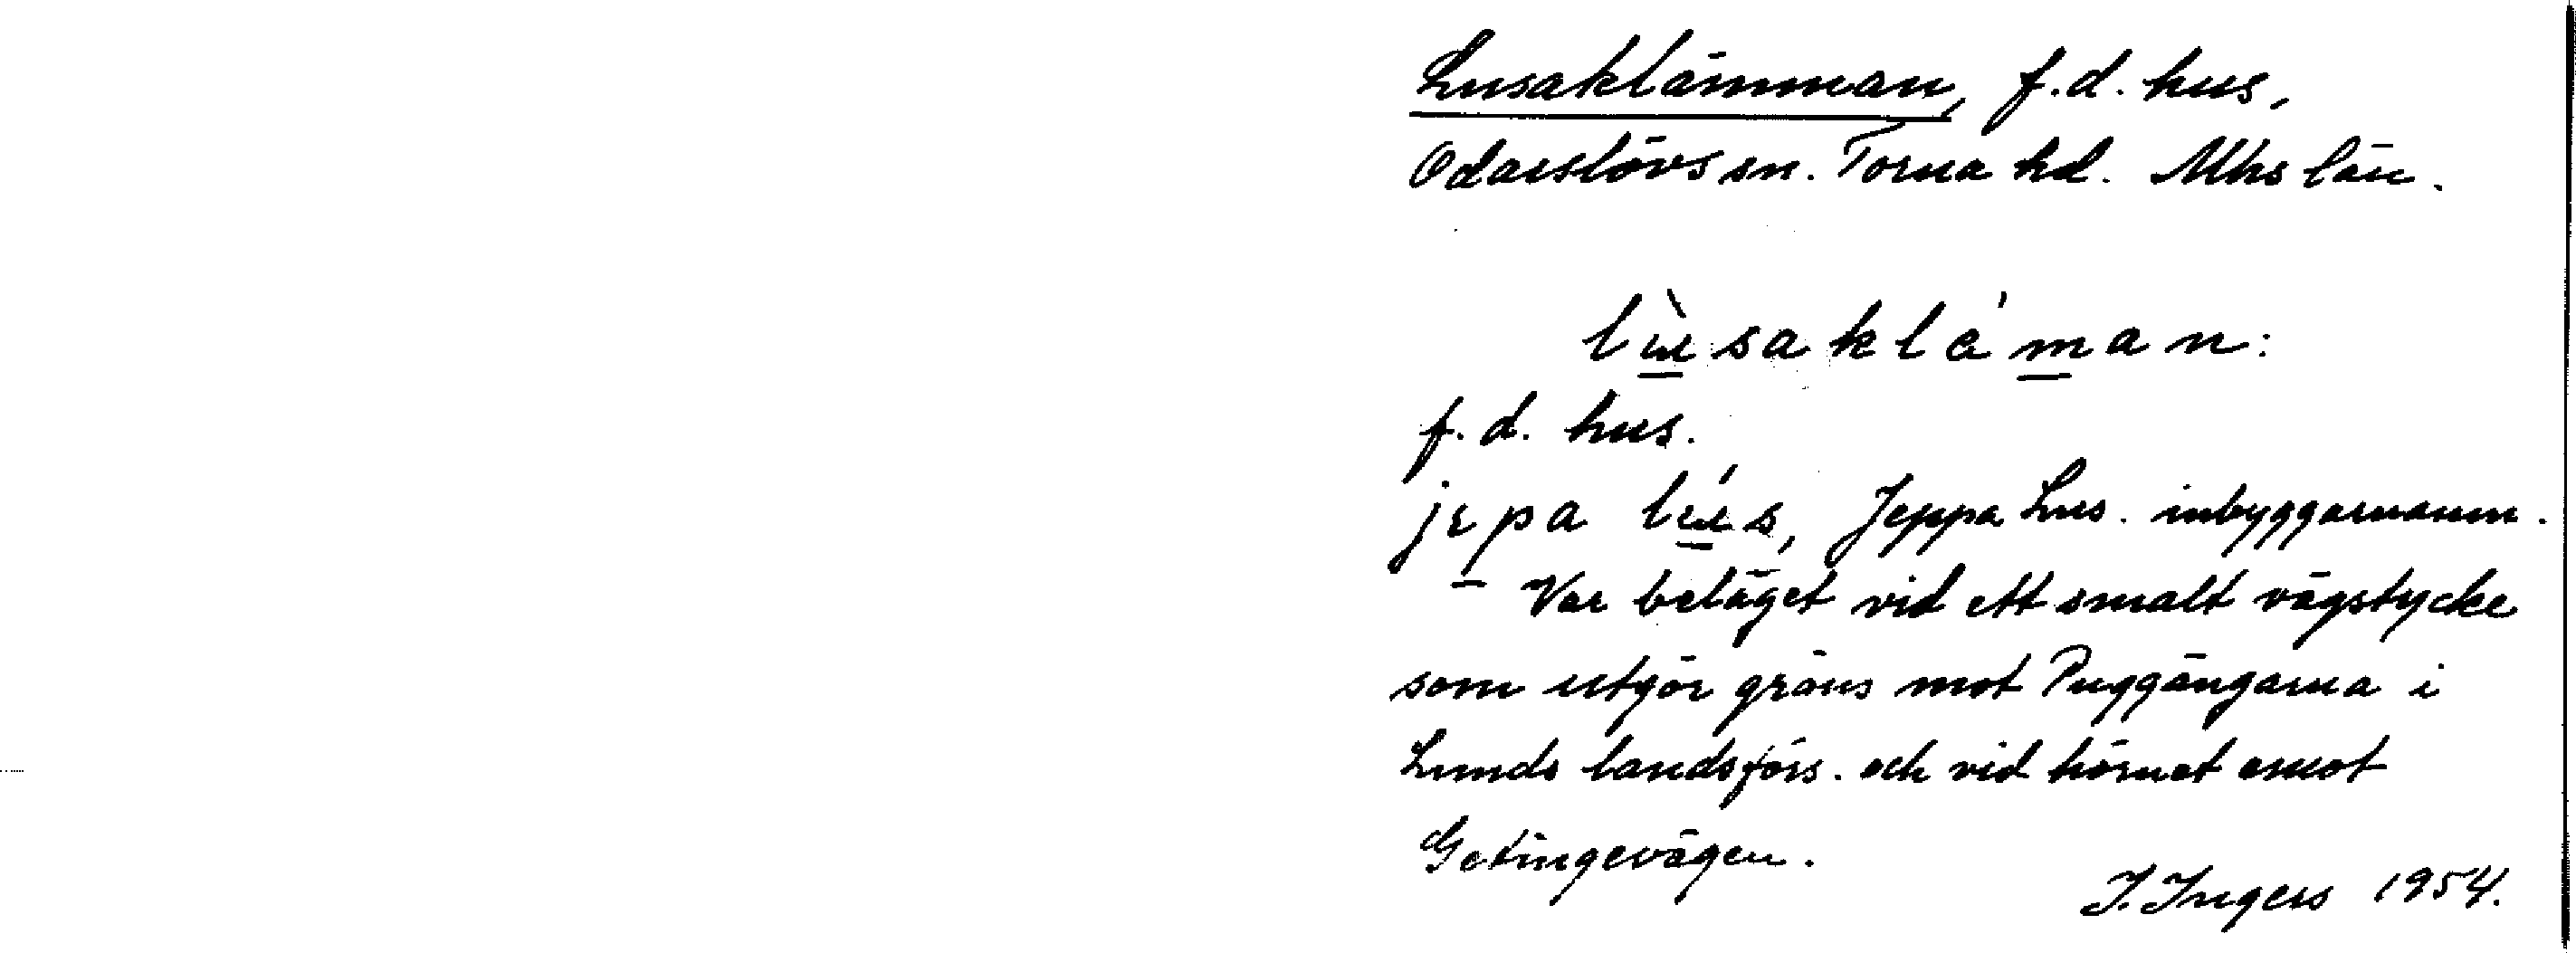 Lusaklämman, f.d. hus,
Odarslövs sn. Torna hd. Mhs län.
lùsakláman:
f.d. hus.
jɛpa lús, Jeppa Lus. inbyggarnamn.
Var beläget vid ett smalt vägstycke
som utgör gräns mot Puggängarna i
Lunds landsförs. och vid hörnet emot
Getingevägen.
I. Ingers 1954.